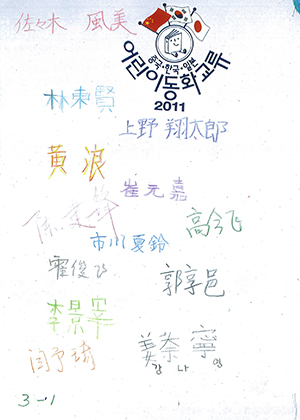 佐々木 風美
중국·한국·일본
어린이동화교류
2011
林東賢
上野 翔太郎
黄浪
崔元嘉
市川夏鈴
高今飞
霍俊飞
郭享邑
李景宰
姜奈寧
강나영
闫予琦
3-1